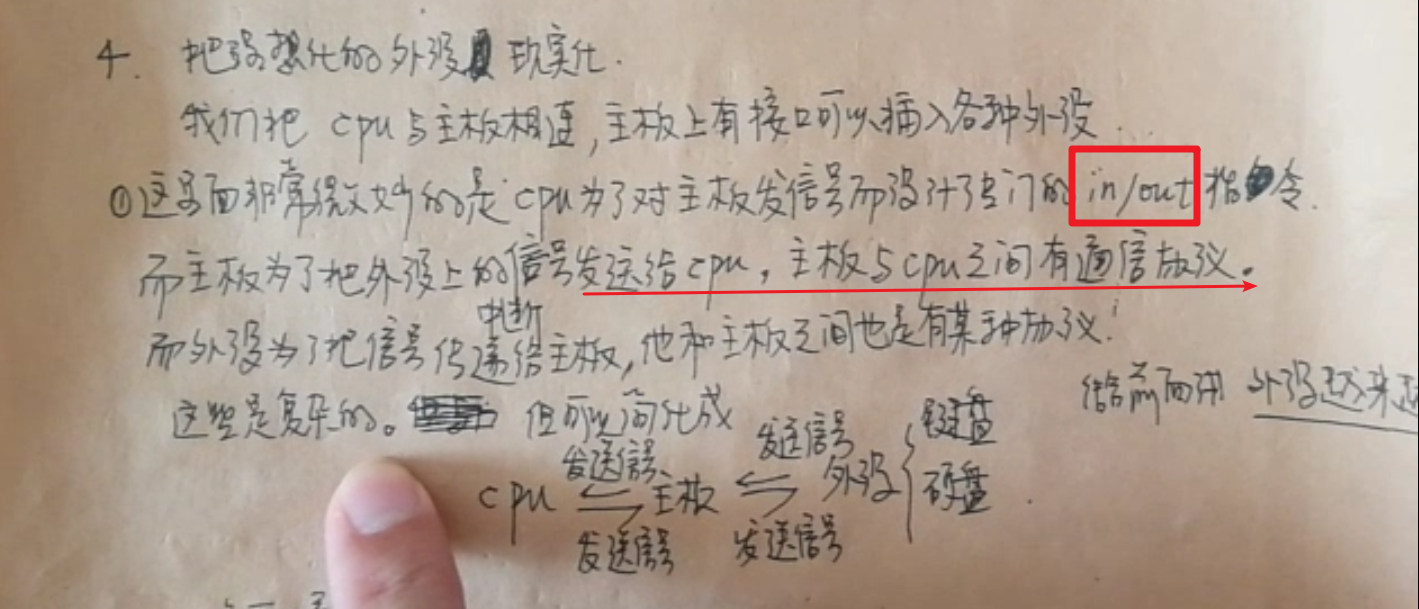 4. 把设想化的外设现实化.
我们把 cpu与主板相连,主板上有接口可以插入各种外设.
①这里面非常微妙的是cpu为了对主板发信号而设计了专门的 in/out 指令.
而主板为了把外设上的信号发送给cpu,主板与cpu之间有通信协议。
中断
而外设为了把信号传递给主板,他和主板之间也是有某种协议!
给前面讲 外设越来
这些是复杂的。 但可以简化成
发送信号 发送信号 键盘
cpu ⇌ 主板 ⇌ 外设 硬盘
发送信号 发送信号